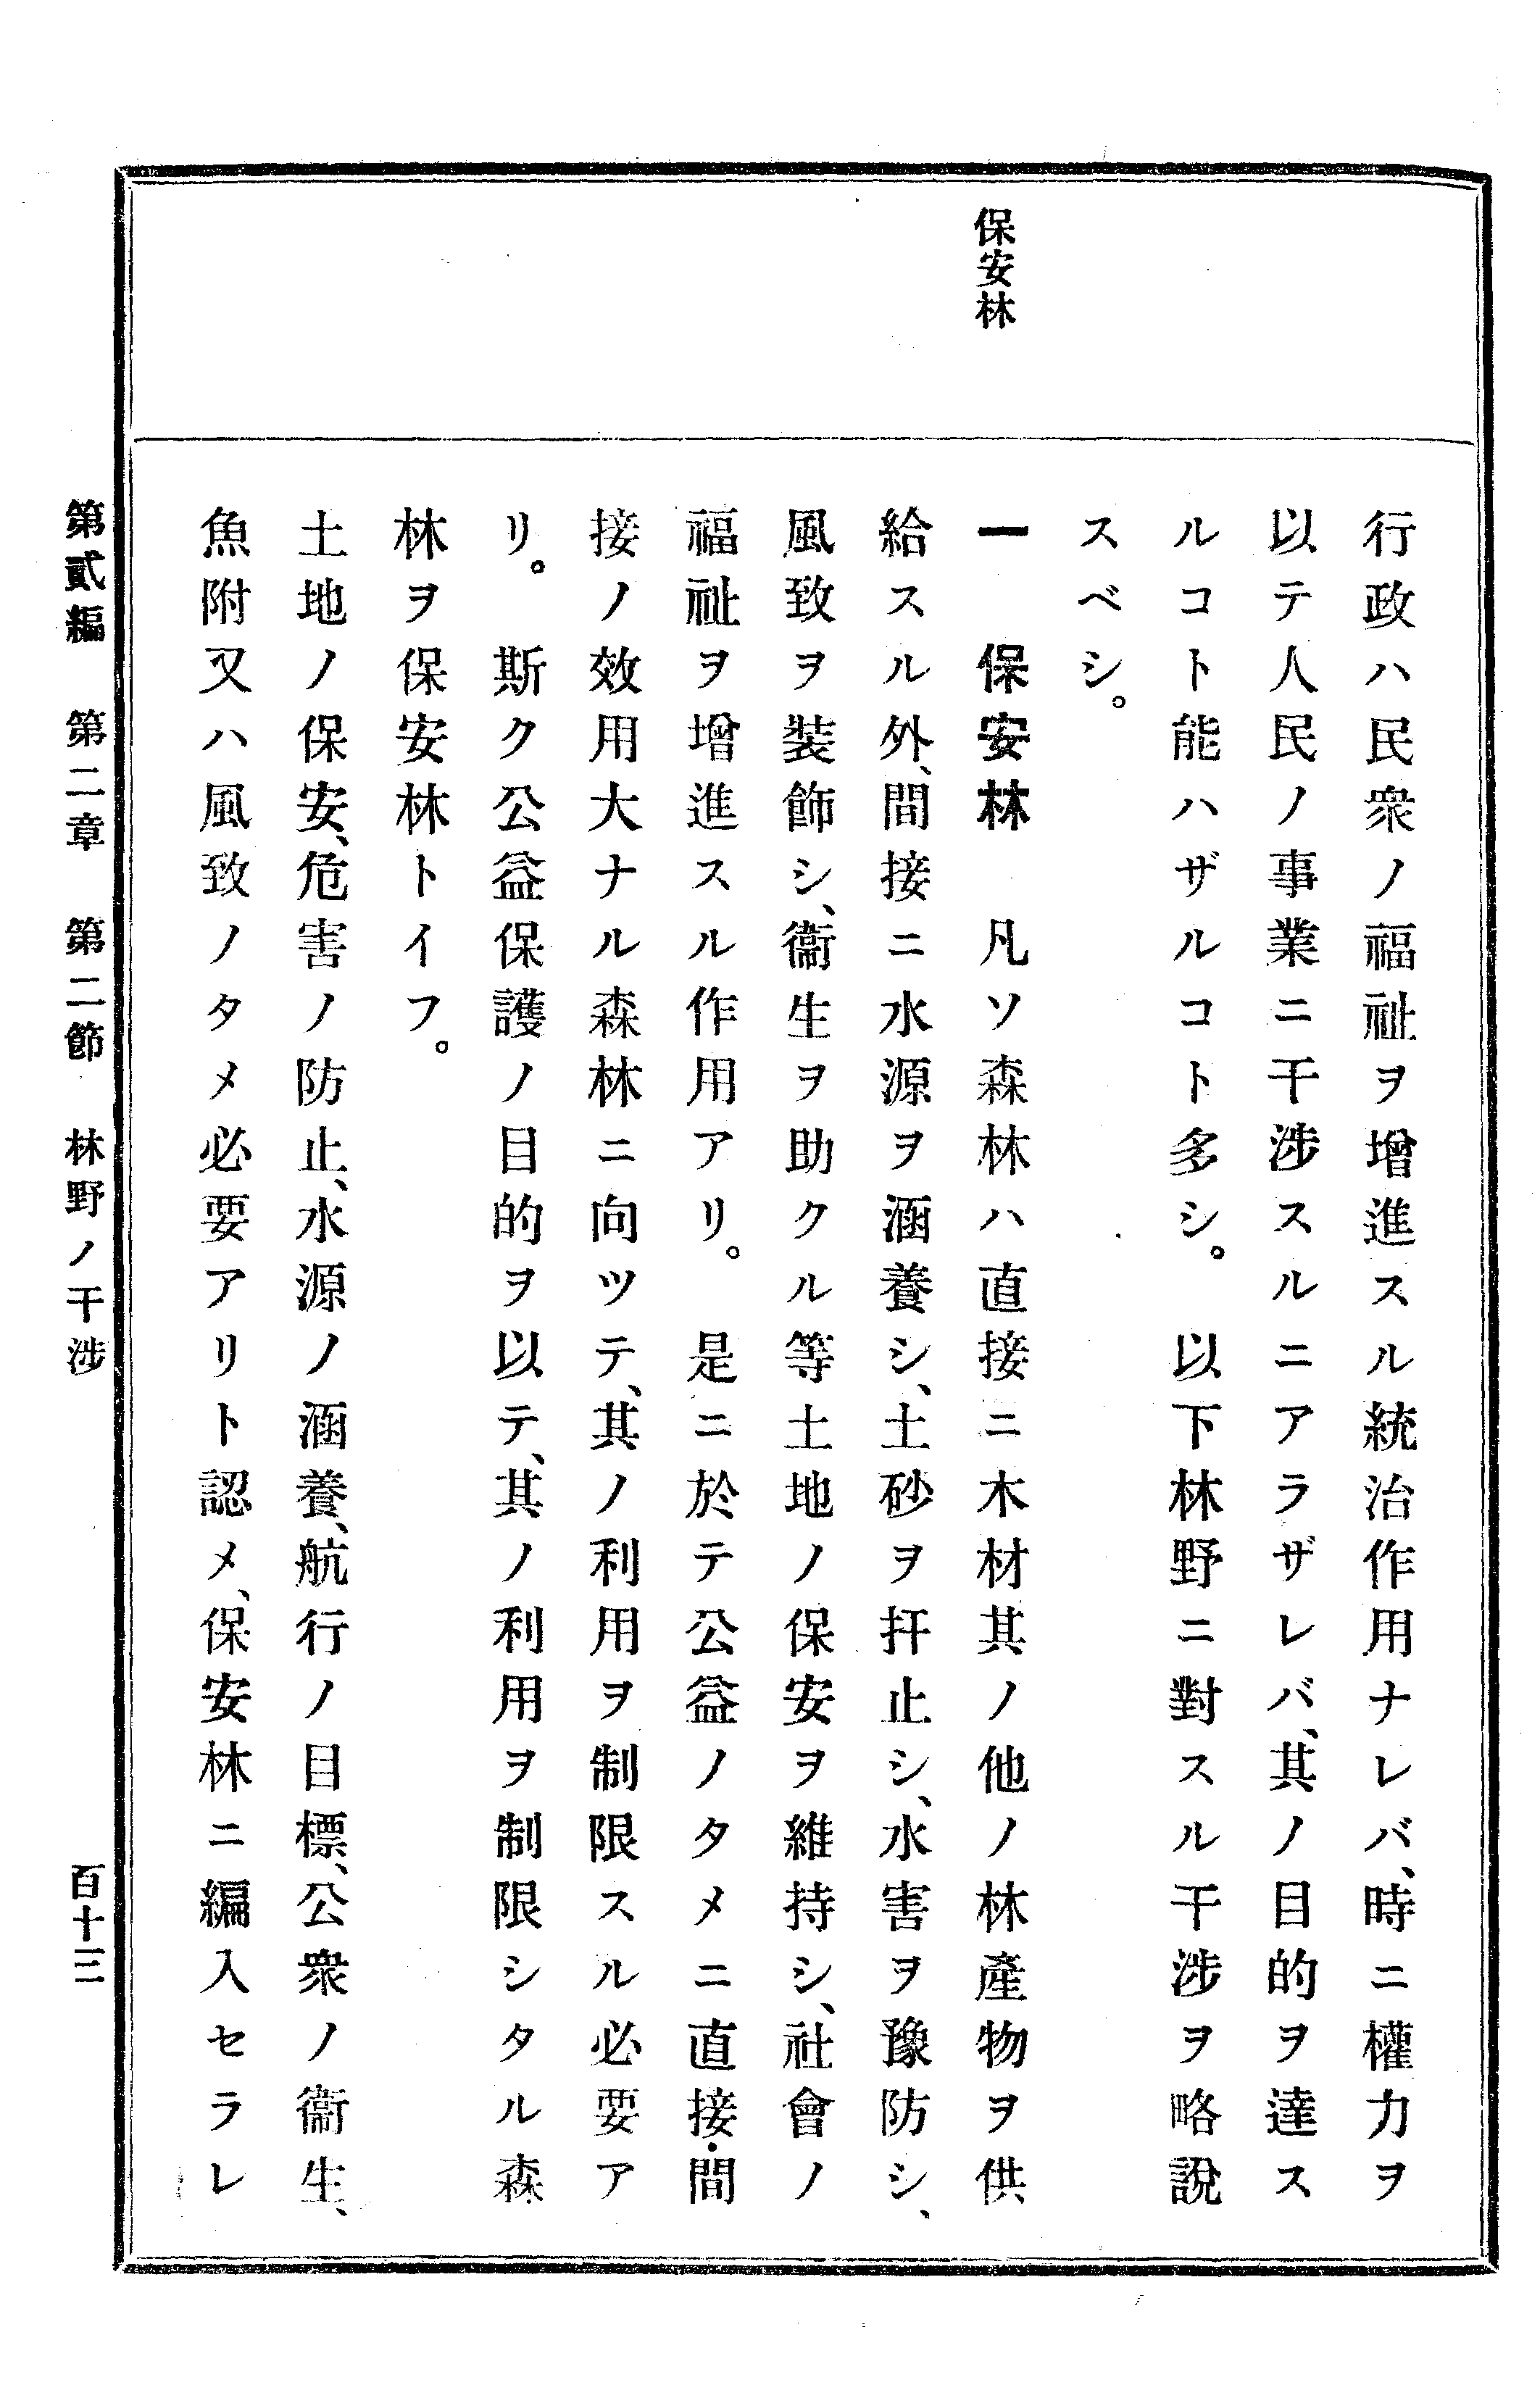 保安林
行政ハ民衆ノ福祉ヲ增進スル統治作用ナレバ、時ニ權力ヲ
以テ人民ノ事業ニ干涉スルニアラザレバ、其ノ目的ヲ達ス
ルコト能ハザルコト多シ。 以下林野ニ對スル干涉ヲ略說
スベシ。
一 保安林 凡ソ森林ハ直接ニ木材其ノ他ノ林產物ヲ供
給スル外、間接ニ水源ヲ涵養シ、土砂ヲ扞止シ、水害ヲ豫防シ、
風致ヲ装飾シ、衞生ヲ助クル等土地ノ保安ヲ維持シ、社會ノ
福祉ヲ增進スル作用アリ。 是ニ於テ公益ノタメニ直接・間
接ノ效用大ナル森林ニ向ツテ、其ノ利用ヲ制限スル必要ア
リ。 斯ク公益保護ノ目的ヲ以テ、其ノ利用ヲ制限シタル森
林ヲ保安林トイフ。
土地ノ保安、危害ノ防止、水源ノ涵養、航行ノ目標、公衆ノ衞生、
魚附又ハ風致ノタメ必要アリト認メ、保安林ニ編入セラレ
第貳編 第二章 第二節 林野ノ干涉 百十三